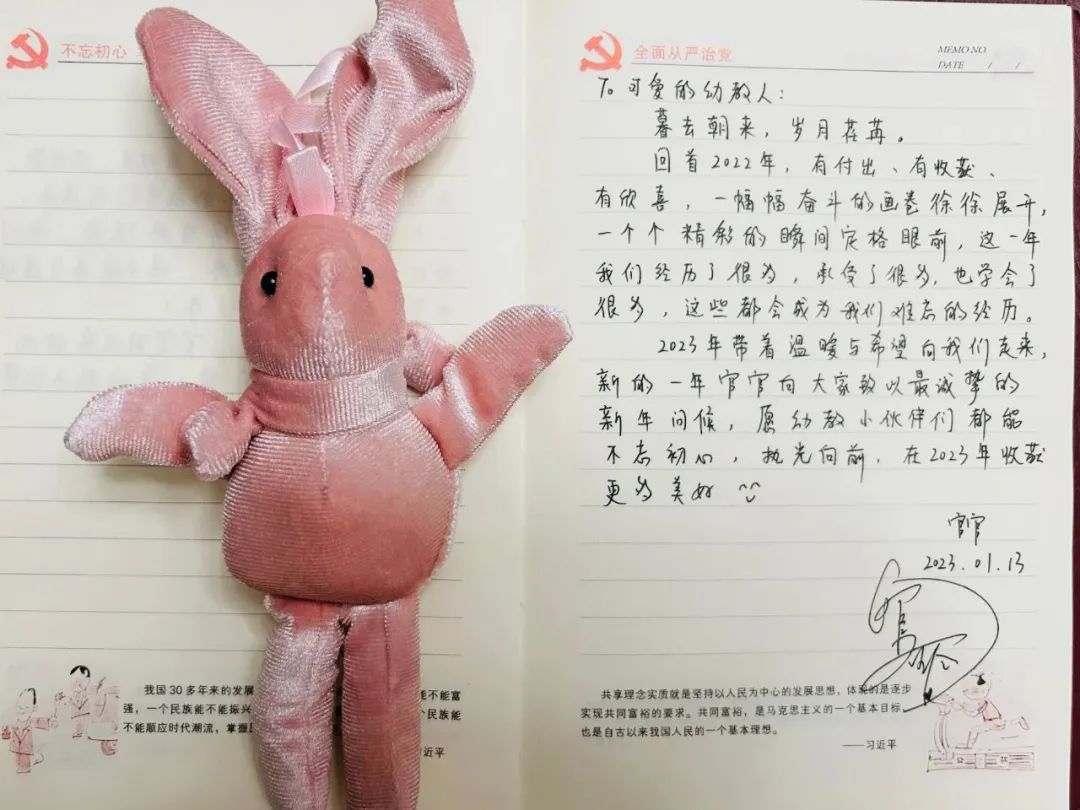 不忘初心
我国30多年来的发展
强，一个民族能不能振兴
不能顺应时代潮流，掌握
能不能富
个民族能
近平
全面从严治党
MEMO NO.
DATE / /
To 可爱的幼教人：
暮去朝来，岁月荏苒。
回首2022年，有付出、有收获、
有欣喜，一幅幅奋斗的画卷徐徐展开，
一个个精彩的瞬间定格眼前，这一年
我们经历了很多，承受了很多，也学会了
很多，这些都会成为我们难忘的经历。
2023年带着温暖与希望向我们走来，
新的一年官官向大家致以最诚挚的
新年问候，愿幼教小伙伴们都能
不忘初心，执光向前，在2023年收获
更多美好
官官
2023.01.13
共享理念实质就是坚持以人民为中心的发展思想，体现的是逐步
实现共同富裕的要求。共同富裕，是马克思主义的一个基本目标，
也是自古以来我国人民的一个基本理想。
——习近平